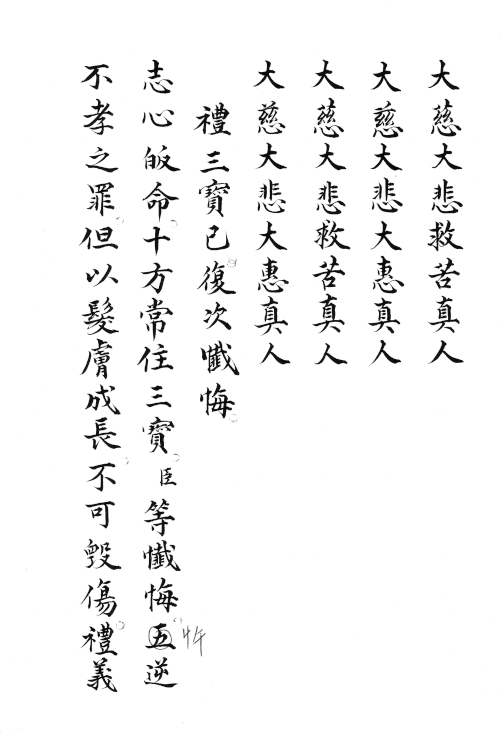 大慈大悲救苦真人
大慈大悲大惠真人
大慈大悲救苦真人
大慈大悲大惠真人
禮三寶已復次懺悔
志心皈命十方常住三寶臣等懺悔五逆
忤
不孝之罪但以髮膚成長不可毀傷禮義